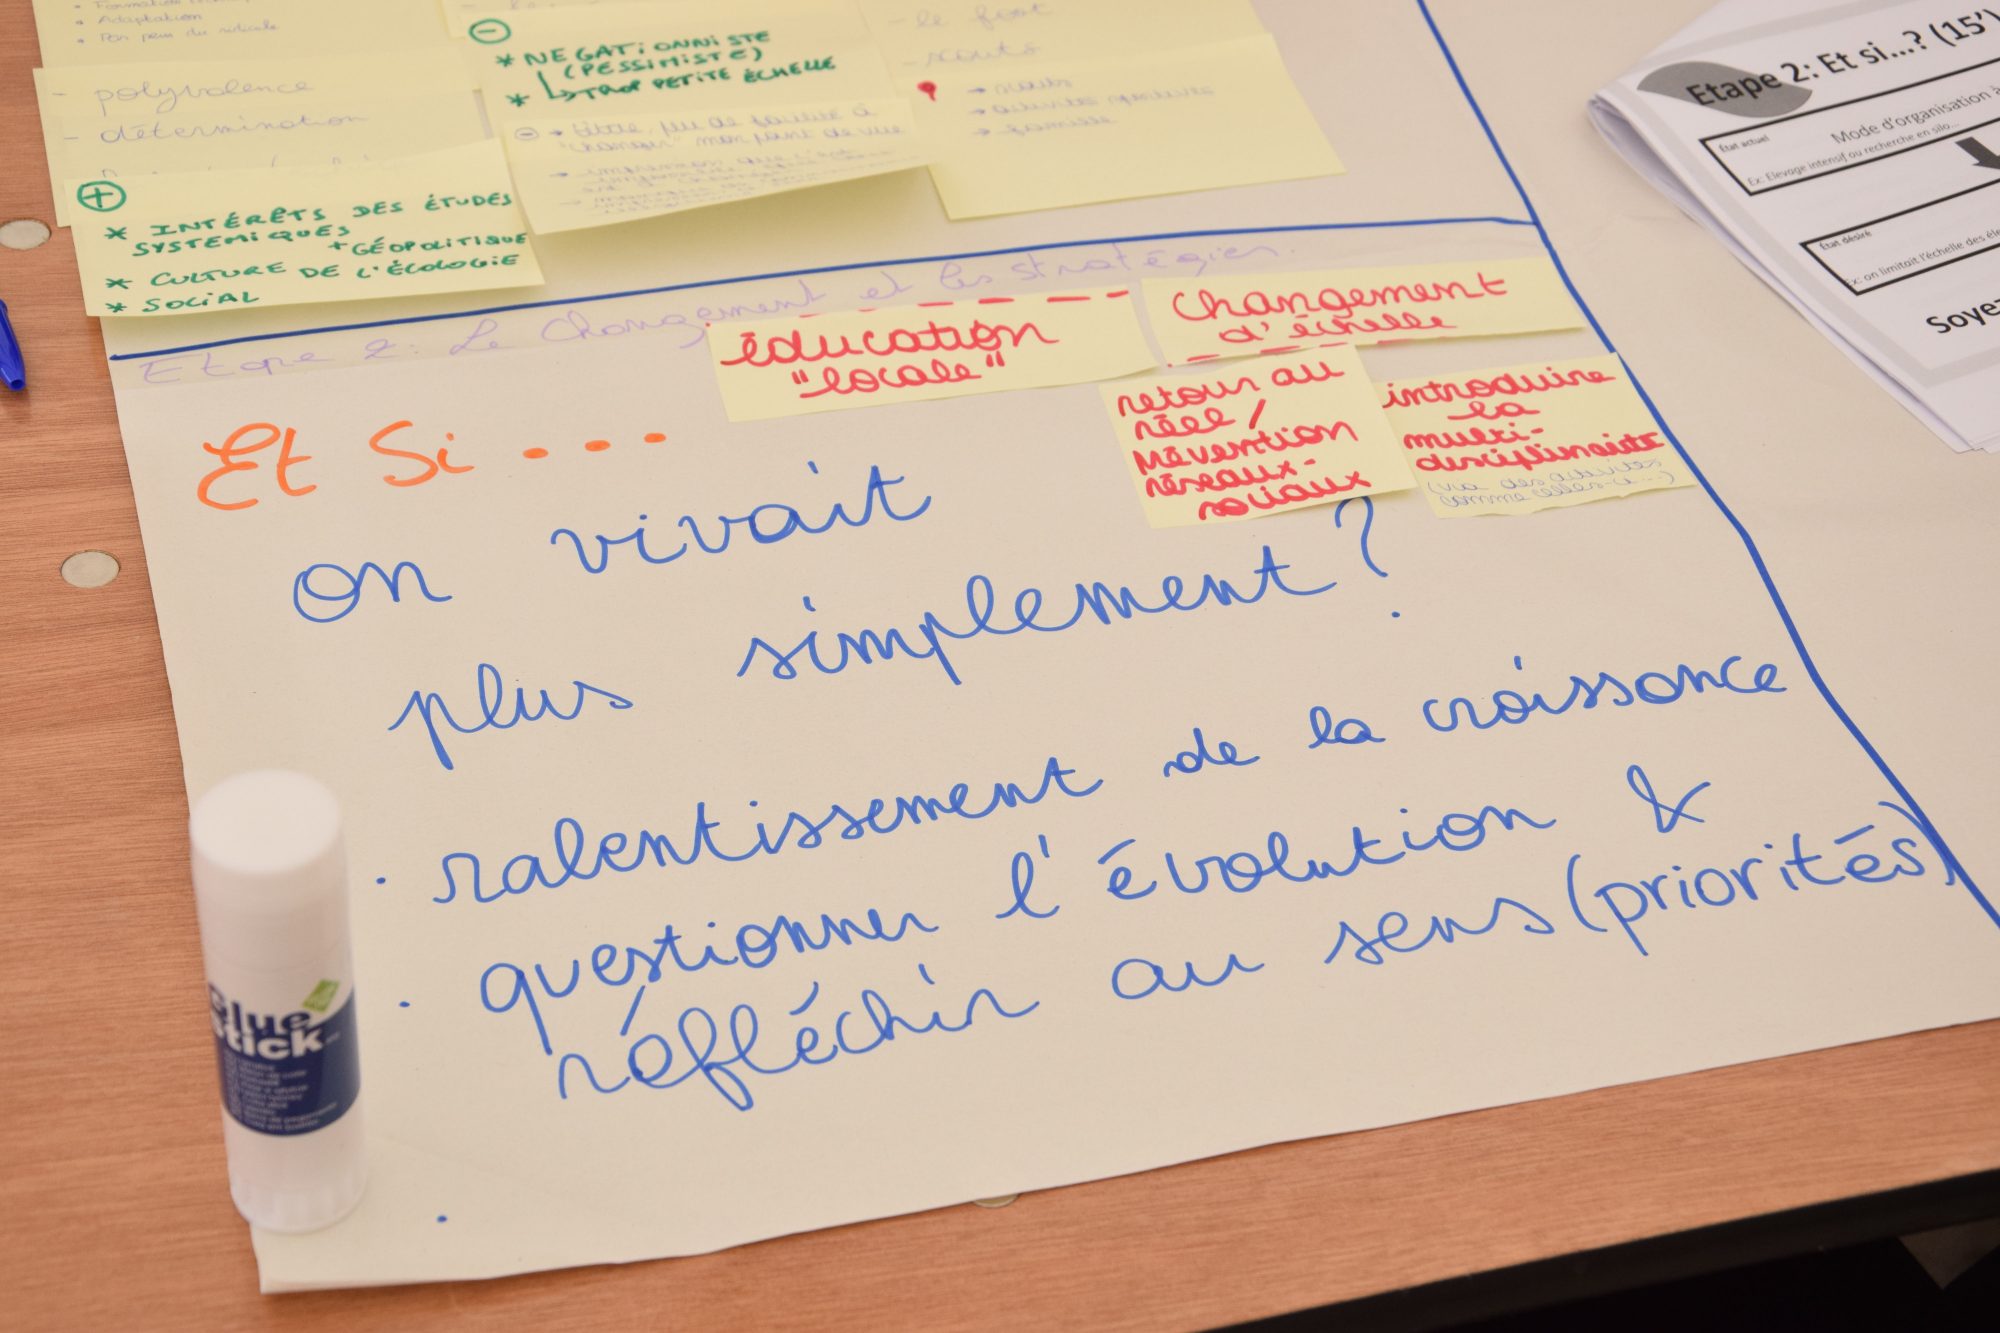 • Adaptation
- polyvalence
- détermination
⊖
* NEGATIONNISTE
(PESSIMISTE)
* ↳ TROP PETITE ÉCHELLE
⊖ → titre, peu de
"changer" mon point de vue
- le foot
- scouts
→ scouts
→ activités sportives
→ famille
⊕
* INTÉRÊTS DES ÉTUDES
SYSTEMIQUES
+ GÉOPOLITIQUE
* CULTURE DE L'ÉCOLOGIE
* SOCIAL
Etape 2: Le changement et les stratégies.
éducation
"locale"
changement
d'échelle
retour au
réel /
prévention
réseaux-
sociaux
introduire
la
multi-
disciplinaire
(via des activités
comme celles-ci...)
Et Si ...
on vivait
plus simplement ?
• ralentissement de la croissance
• questionner l'évolution &
réfléchir au sens (priorités)
•
Glue
Stick
Etape 2: Et si...? (15')
État actuel
Mode d'organisation à
Ex: Elevage intensif ou recherche en silo...
État désiré
Ex: on limitait l'échelle des
Soyez